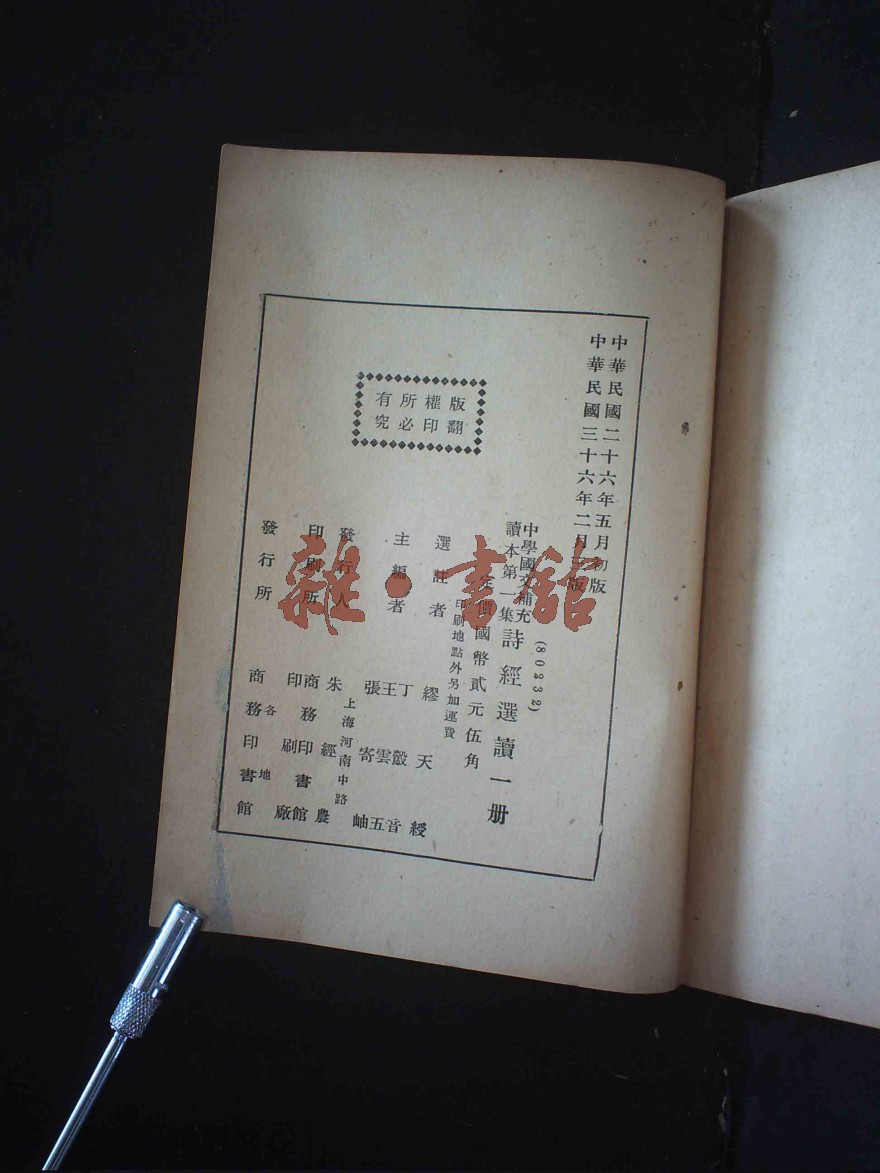 中華民國二十六年五月初版
中華民國三十六年二月三版
(80232)
中學國文補充
讀本第一集
詩經選讀一册
定價國幣貳元伍角
印刷地點外另加運費
選註者 繆天綬
主編者 丁㲄音
王雲五
張寄岫
發行人 朱經農
上海河南中路
印刷所 商務印書館
印刷廠
發行所 商務印書館
各地
版權所有
翻印必究
雜·書館